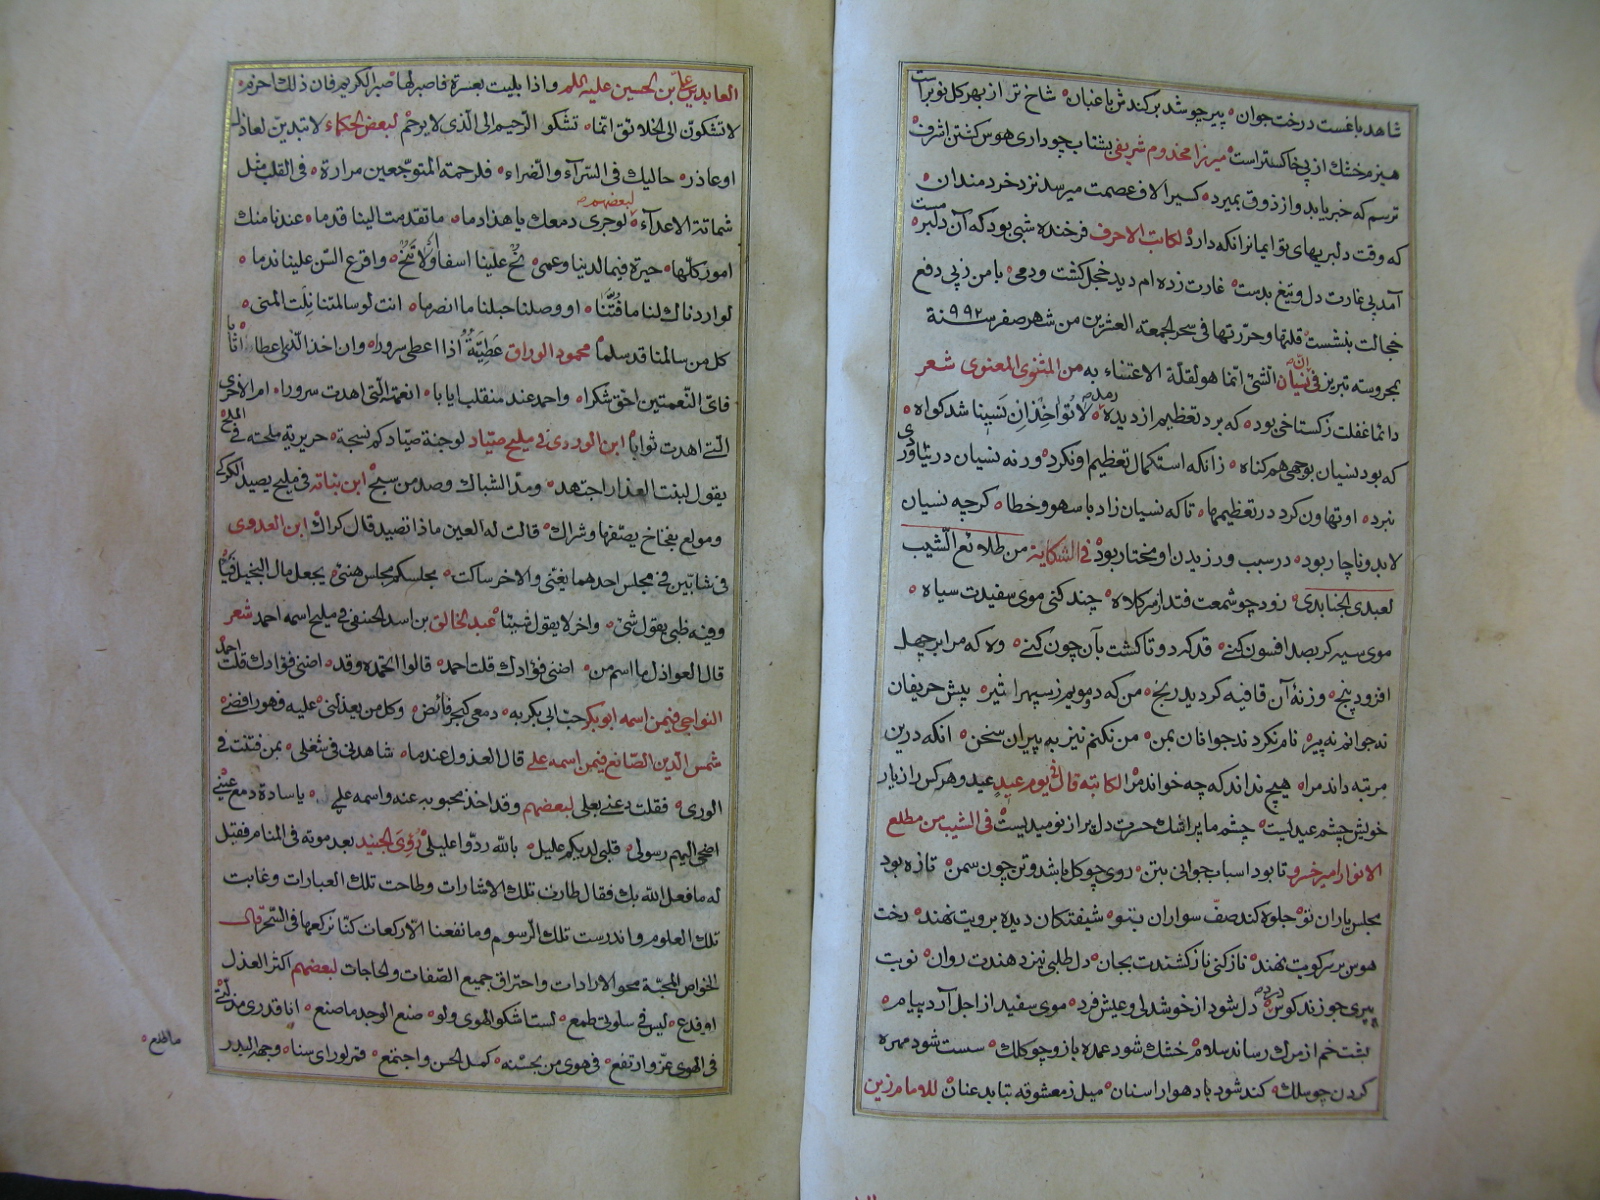 شاهد باغست درخت جوان پیر چو شد برکندش باغبان شاخ تر از بهر کل نو برست
هیزم خشك از پی خاکستر است میرزا مخدوم شریفی بشتاب چو داری هوس کشتن اشرف
ترسم که خبر یابد و از ذوق بمیرد کسیرا لاف عصمت میرسد نزد خردمندان
که وقت دلبریهای تو ایمانرا نکه دارد لکاتب الاحرف فرخنده شبی بود که آن دلبر مست
آمد پی غارت دل و تیغ بدست غارت زده ام دید خجل کشت و دمی با من ز پی دفع
خجالت بنشست قلتها و حررتها فی سحر الجمعة العشرین من شهر صفر سنة ۹۹۲
بمحروسه تبریز فی ان نسیان الشئ انما هو لقلة الاعتناء به من المثنوی المعنوی شعر
دائما غفلت ز کستاخی بود که برد تعظیم از دیده رمد لا تؤاخذ ان نسینا شد کواه
که بود نسیان بوجهی هم کناه زانکه استکمال تعظیم او نکرد ورنه نسیان در نیاوردی
نبرد او تهاون کرد در تعظیمها تا که نسیان زاد با سهو و خطا کرچه نسیان
لابد و ناچار بود در سبب ورزیدن او مختار بود فی الشکایة من طلائع الشیب
لعبدی الجنابدی زود چو شمعت فتد از سر کلاه چند کنی موی سفیدت سیاه
موی سیه کر بصد افسون کنی قد که دو تا کشت بآن چون کنی وه که مرا بر چهل
افزود پنج وزنهٔ آن قافیه کردید رنج من که دو مویم ز سپهر اثیر پیش حریفان
نه جوانم نه پیر نام نکردند جوانان بمن من نکنم نیز به پیران سخن انکه درین
مرتبه داند مرا هیچ نداند که چه خواند مرا لکاتبه قال فی یوم عید عید و هر کس را ز یار
خویش چشم عیدیست چشم ما پر اشك حسرت دل پر از نومیدیست فی الشیب من مطلع
الانوار امیر خسرو تا بود اسباب جوانی بتن روی چو کل باشد و تن چون سمن تازه بود
مجلس یاران بتو جلوه کند صف سواران بتو شیفتکان دیده برویت نهند رخت
هوس بر سر کویت نهند ناز کنی ناز کشندت بجان دل طلبی نیز دهندت روان نوبت
پیری چو زند کوس درد دل شود از خوشدلی و عیش فرد موی سفید از اجل آرد پیام
پشت خم از مرك رساند سلام خشك شود عمده بازو چو کلك سست شود مهره
کردن چو سلك کند شود باد هوا را سنان میل ز معشوقه بتابد عنان للامام زین
العابدین علی بن الحسین علیه السلم واذا بلیت بعسرة فاصبر لها صبر الکریم فان ذلك احزم
لا تشکون الی الخلائق انما تشکو الرحیم الی الذی لا یرحم لبعض الحکماء لا تبدین لعاذل
او عاذر حالیك فی السرآء والضراء فلرحمة المتوجعین مرارة فی القلب مثل
شماتة الاعدآء لبعضهم لو جری دمعك یا هذا دما ما تقدمت الینا قدما عندنا منك
امور کلها حیرة فیما لدینا وعمی نح علینا اسفا او لا تنح واقرع السن علینا ندما
لو اردناك لنا ما فتنا او وصلنا حبلنا ما انصرما انت لو سالمتنا نلت المنی
کل من سالمنا قد سلما محمود الوراق عطیته اذا اعطی سرورا وان اخذ الذی اعطا اثابا
فای النعمتین احق شکرا واحمد عند منقلب ایابا انعمته التی اهدت سرورا ام الاخری
التی اهدت ثوابا ابن الوردی فی ملیح صیاد لوجنة صیادکم نسجة حریریة ملحته فی الملح
یقول لنبت العذار اجتهد ومد الشباك وصد من سبح ابن نباته فی ملیح یصید الکرکی
ومولع بفخاخ یصتفها وشراك قالت له العین ماذا تصید قال کراك ابن العدوی
فی شابین فی مجلس احدهما یغنی والاخر ساکت مجلسکم مجلس هنئ یجعل مال البخیل فیا
وفیه ظبی یقول شئ واخر لا یقول شیئا عبد الخالق بن اسد الحنفی فی ملیح اسمه احمد شعر
قال العواذل ما اسم من اضنی فؤادك قلت احمد قالوا اتحمده وقد اضنی فؤادك قلت احمد
النواجی فیمن اسمه ابو بکر حب ابی بکر به دمعی کبحر فائض وکل من یعذلنی علیه فهو رافضی
شمس الدین الصائغ فیمن اسمه علی قال العذول عندما شاهدنی فی شغلی بمن فتنت فی
الوری فقلت دعنی بعلی لبعضهم وقد اخذ محبوبه عنه واسمه علی یا سادة دمع عینی
اضحی الیهم رسولی قلبی لدیکم علیل بالله ردوا علیلی رؤی الجنید بعد موته فی المنام فقیل
له ما فعل الله بك فقال طارت تلك الاشارات وطاحت تلك العبارات وغابت
تلك العلوم واندرست تلك الرسوم وما نفعنا الا رکعات کنا نرکعها فی السحر قال
الخواص المحبة محو الارادات واحتراق جمیع الصفات والحاجات لبعضهم اکثر العذل
او فدع لیس فی سلوتی طمع لست اشکو الهوی ولو صنع الوجد ما صنع انا قدری مذلتی
فی الهوی عز وارتفع فی هوی من بحسنه کمل الحسن واجتمع قمر لو رای سنا وجهه البدر
ما طلع